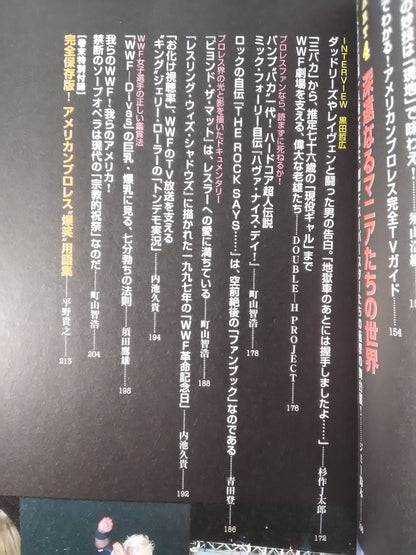 でわかる！アメリカンプロレス完全TVガイド
154
深遠なるマニアたちの世界
INTERVIEW 黒田哲広
ダッドリーズやレイヴェンと闘った男の告白。「地獄車のあとには握手しましたよ……」
杉作J太郎
172
「三バカ」から、推定七十六歳の「現役ギャル」まで
WWF劇場を支える、偉大な老雄たち
DOUBLE H PROJECT
176
プロレスファンなら、読まずに死ねるか！
バンプ・バカ一代！ハードコア超人伝説
ミック・フォーリー自伝『ハヴァ・ナイス・デイ！』
町山智浩
178
ロックの自伝『THE ROCK SAYS……』は、空前絶後の「ファンブック」なのである
青田登
186
プロレス界の光と影を描いたドキュメンタリー
『ビヨンド・ザ・マット』はレスラーへの愛に満ちている
町山智浩
188
『レスリング・ウィズ・シャドウズ』に描かれた一九九七年の「WWF革命記念日」
内池久貴
192
「お化け視聴率」WWFのTV放送を支える
“キング”ジェリー・ローラーの「トンデモ実況」
内池久貴
194
WWF女子選手の正しい鑑賞法
「WWF Divas」の巨乳・爆乳に見る、七分勃ちの法則
須田鷹雄
198
我らのWWF！我らのアメリカ！
禁断のソープオペラは現代の「宗教的祝祭」なのだ
町山智浩
204
【巻末特別付録】
完全保存版！アメリカンプロレス“爆笑”用語集
平野貴之
213